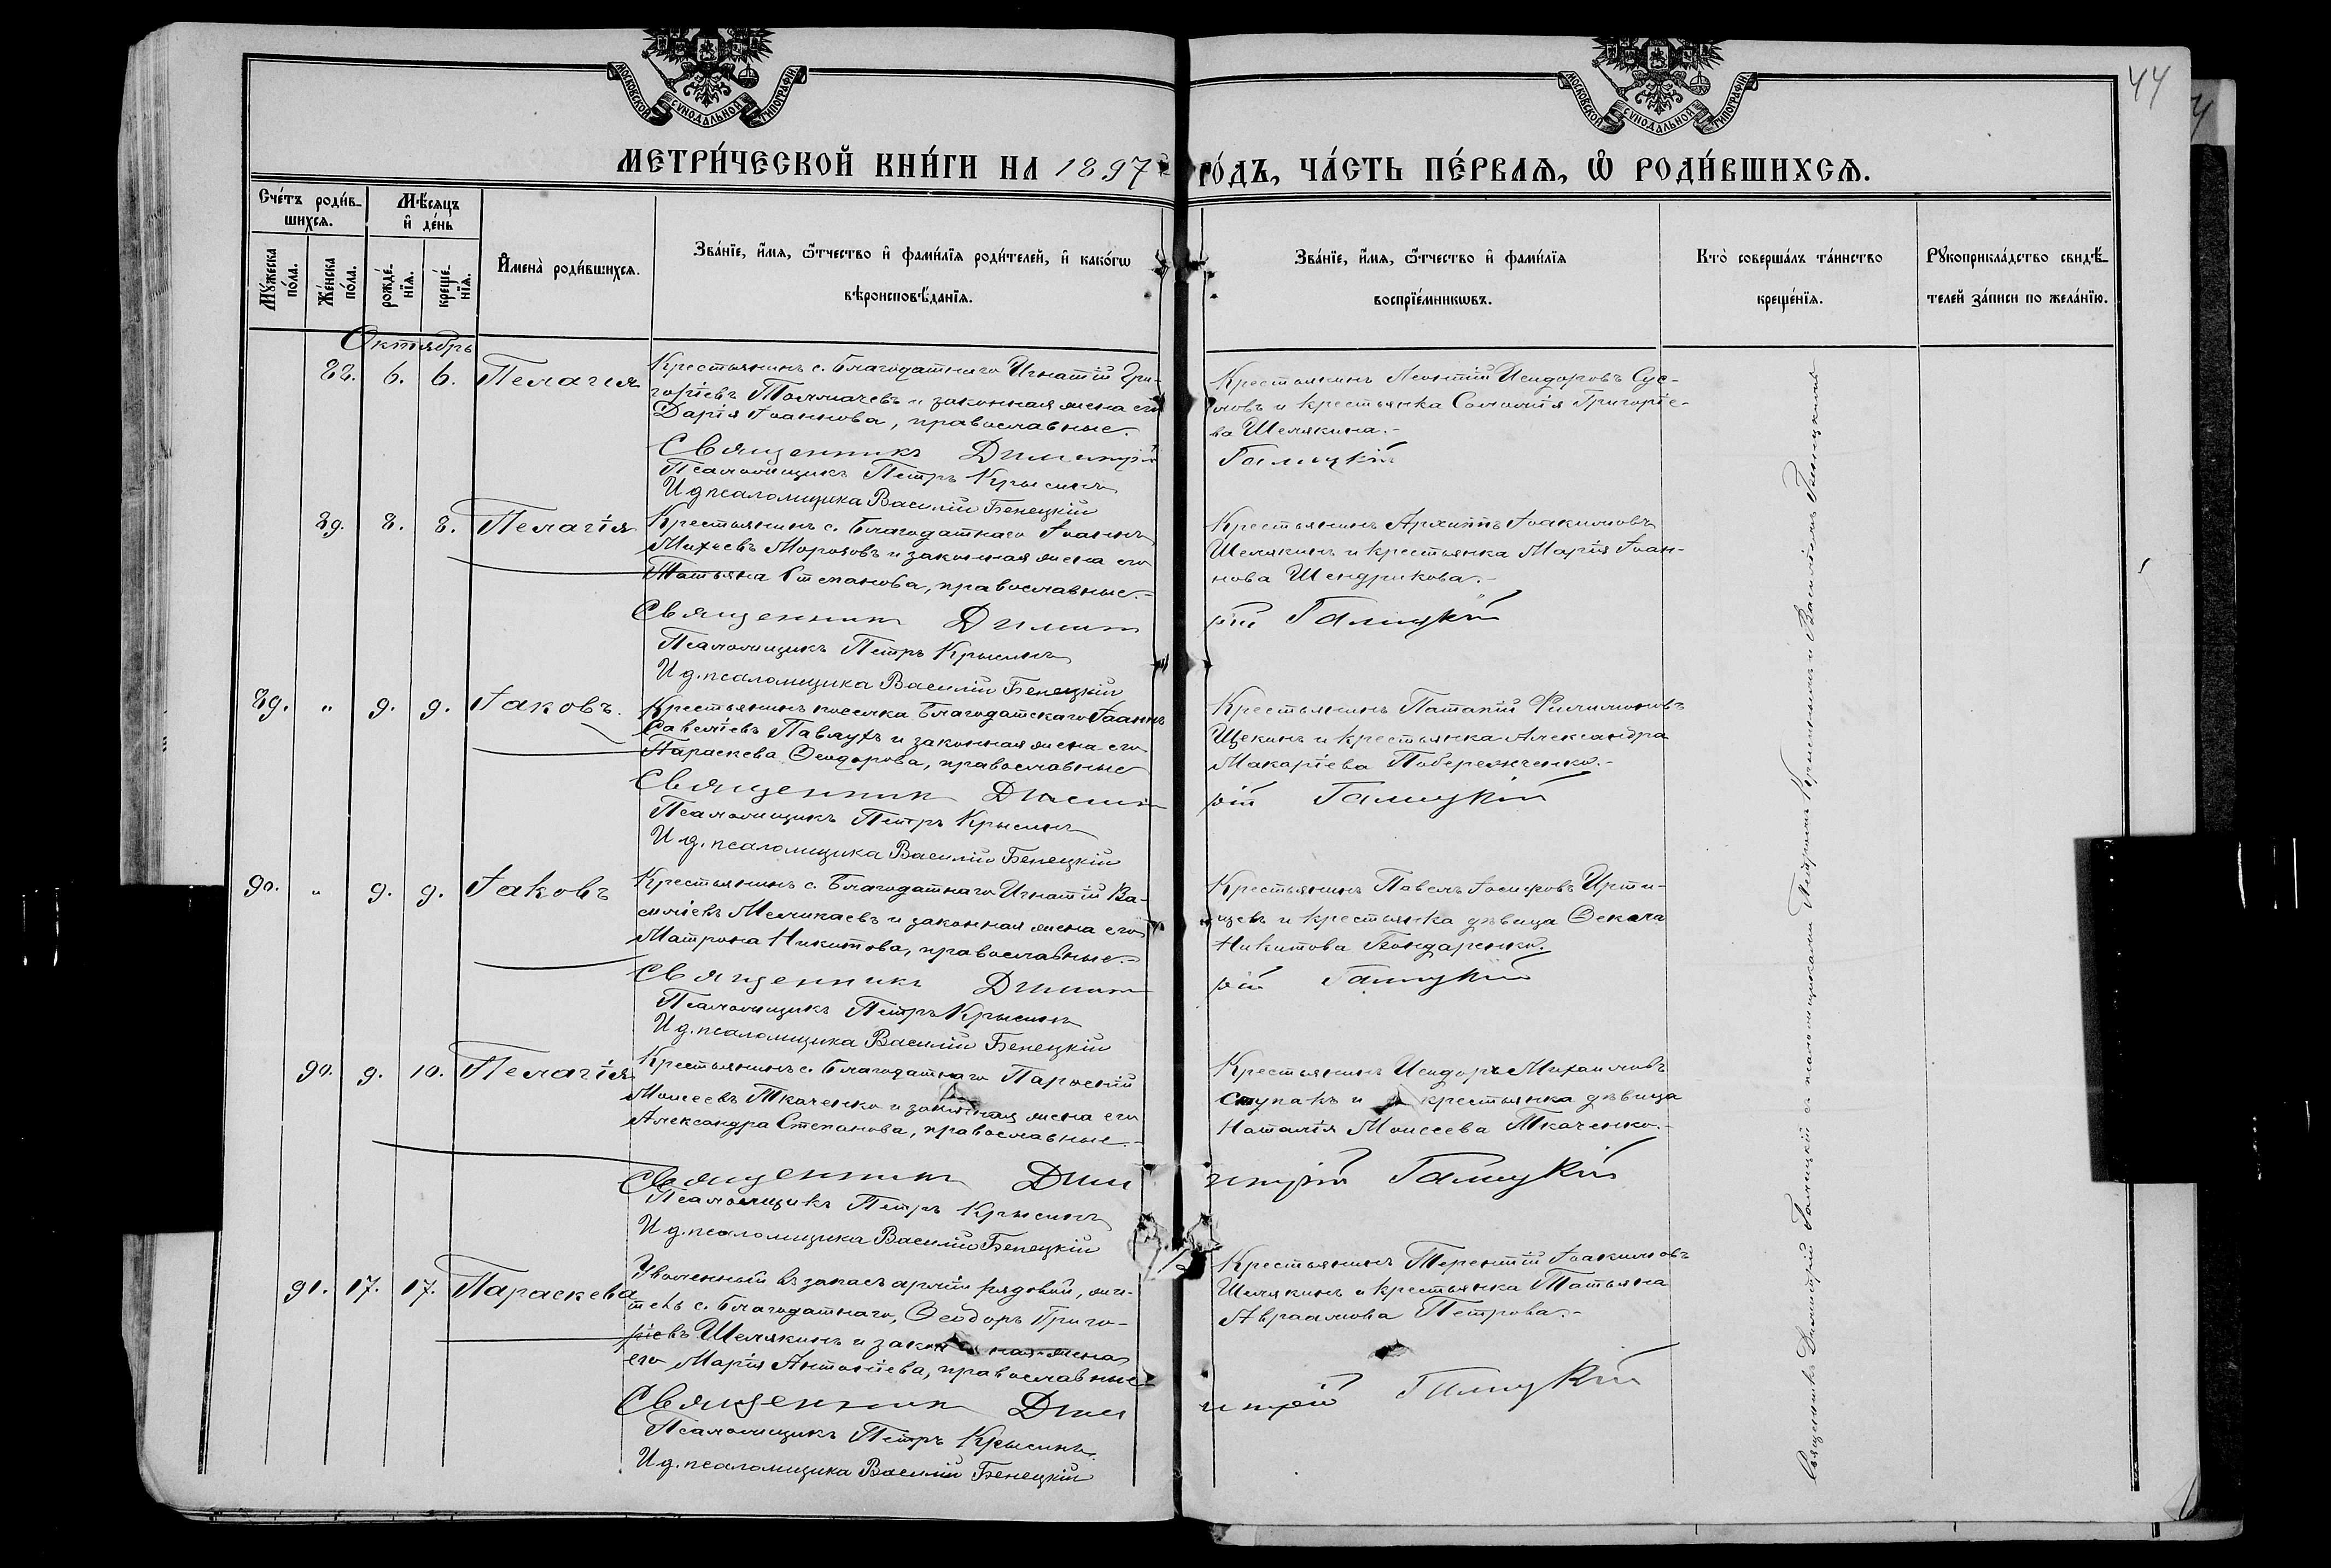 МОСКОВСКОЙ СУНОДАЛЬНОЙ ТИПОГРАФІИ
МОСКОВСКОЙ СУНОДАЛЬНОЙ ТИПОГРАФІИ
44
МЕТРИ́ЧЕСКОЙ КНИ́ГИ НА 1897 ГО́ДЪ, ЧА́СТЬ ПЕ́РВАѦ, Ѡ РОДИ́ВШИХСѦ.
Сче́тъ роди́в-
шихсѧ.
Мѣ́сѧцъ
и҆ де́нь
Мꙋ́жеска по́ла.
Же́нска по́ла.
рожде́-нїѧ.
креще́-нїѧ.
И҆мена̀ роди́вшихсѧ.
Зва́нїе, и҆́мѧ, ѿтчество и҆ фами́лїѧ роди́телей, и҆ како́гѡ
вѣроисповѣ́данїѧ.
Зва́нїе, и҆́мѧ, ѿтчество и҆ фами́лїѧ
воспрїе́мникѡвъ.
Кто̀ соверша́лъ та́инство
креще́нїѧ.
Рꙋкоприкла́дство свидѣ́-
телей за́писи по жела́нїю.
Октябрь
88. 6. 6. Пелагія
Крестьянинъ с. Благодатнаго Игнатій Гри-
горіевъ Толмачевъ и законная жена его
Дарія Іоаннова, православные.
Крестьянинъ Леонтій Исидоровъ Сус-
ловъ и крестьянка Соломія Григоріе-
ва Шелякина.-
Священникъ Димитрій Галицкій
Псаломщикъ Петръ Крысинъ
И д псаломщика Василій Бенецкій
89. 8. 8. Пелагія
Крестьянинъ с. Благодатнаго Іоаннъ
Михеевъ Морозовъ и законная жена его
Татьяна Степанова, православные.-
Крестьянинъ Архиппъ Іоакимовъ
Шелякинъ и крестьянка Марія Іоан-
нова Шендрикова.-
Священник Димитрій Галицкій
Псаломщикъ Петръ Крысинъ
И д. псаломщика Василій Бенецкій
89. " 9. 9. Іаковъ.
Крестьянинъ поселка Благодатскаго Іоаннъ
Савеліевъ Павлухъ и законная жена его
Параскева Ѳеодорова, православные
Крестьянинъ Патапій Филимоновъ
Щекинъ и крестьянка Александра
Макаріева Побережченко.-
Священник Димитрій Галицкій
Псаломщикъ Петръ Крысинъ
И д. псаломщика Василій Бенецкій
90. " 9. 9. Іаковъ
Крестьянинъ с. Благодатнаго Игнатій Ва-
силіевъ Меликаевъ и законная жена его
Матрона Никитова, православные.-
Крестьянинъ Павелъ Іосифовъ
и крестьянка дѣвица Ѳекла
Никитова Бондаренко.
Священникъ Димитрій Галицкій
Псаломщикъ Петръ Крысинъ
И д. псаломщика Василій Бенецкій
90. 9. 10. Пелагія
Крестьянинъ с. Благодатнаго
Моисеевъ Ткаченко и законная жена его
Александра Степанова, православные.-
Крестьянинъ Исидоръ Михаиловъ
Ступакъ и крестьянка дѣвица
Наталія Моисеева Ткаченко.-
Священник Димитрій Галицкій
Псаломщикъ Петръ Крысинъ
И д. псаломщика Василій Бенецкій
91. 17. 17. Параскева
Уволенный въ запасъ арміи рядовой, жи-
тель с. Благодатнаго, Ѳеодоръ Григо-
ріевъ Шелякинъ и законная жена
его Марія Антоніева, православные
Крестьянинъ Терентій Іоакимовъ
Шелякинъ и крестьянка Татьяна
Авраамова Петрова.-
Священник Димитрій Галицкій
Псаломщикъ Петръ Крысинъ.
И д. псаломщика Василій Бенецкій
Священникъ Димитрій Галицкій съ псаломщиками Петромъ Крысинымъ и Василіемъ Бенецкимъ